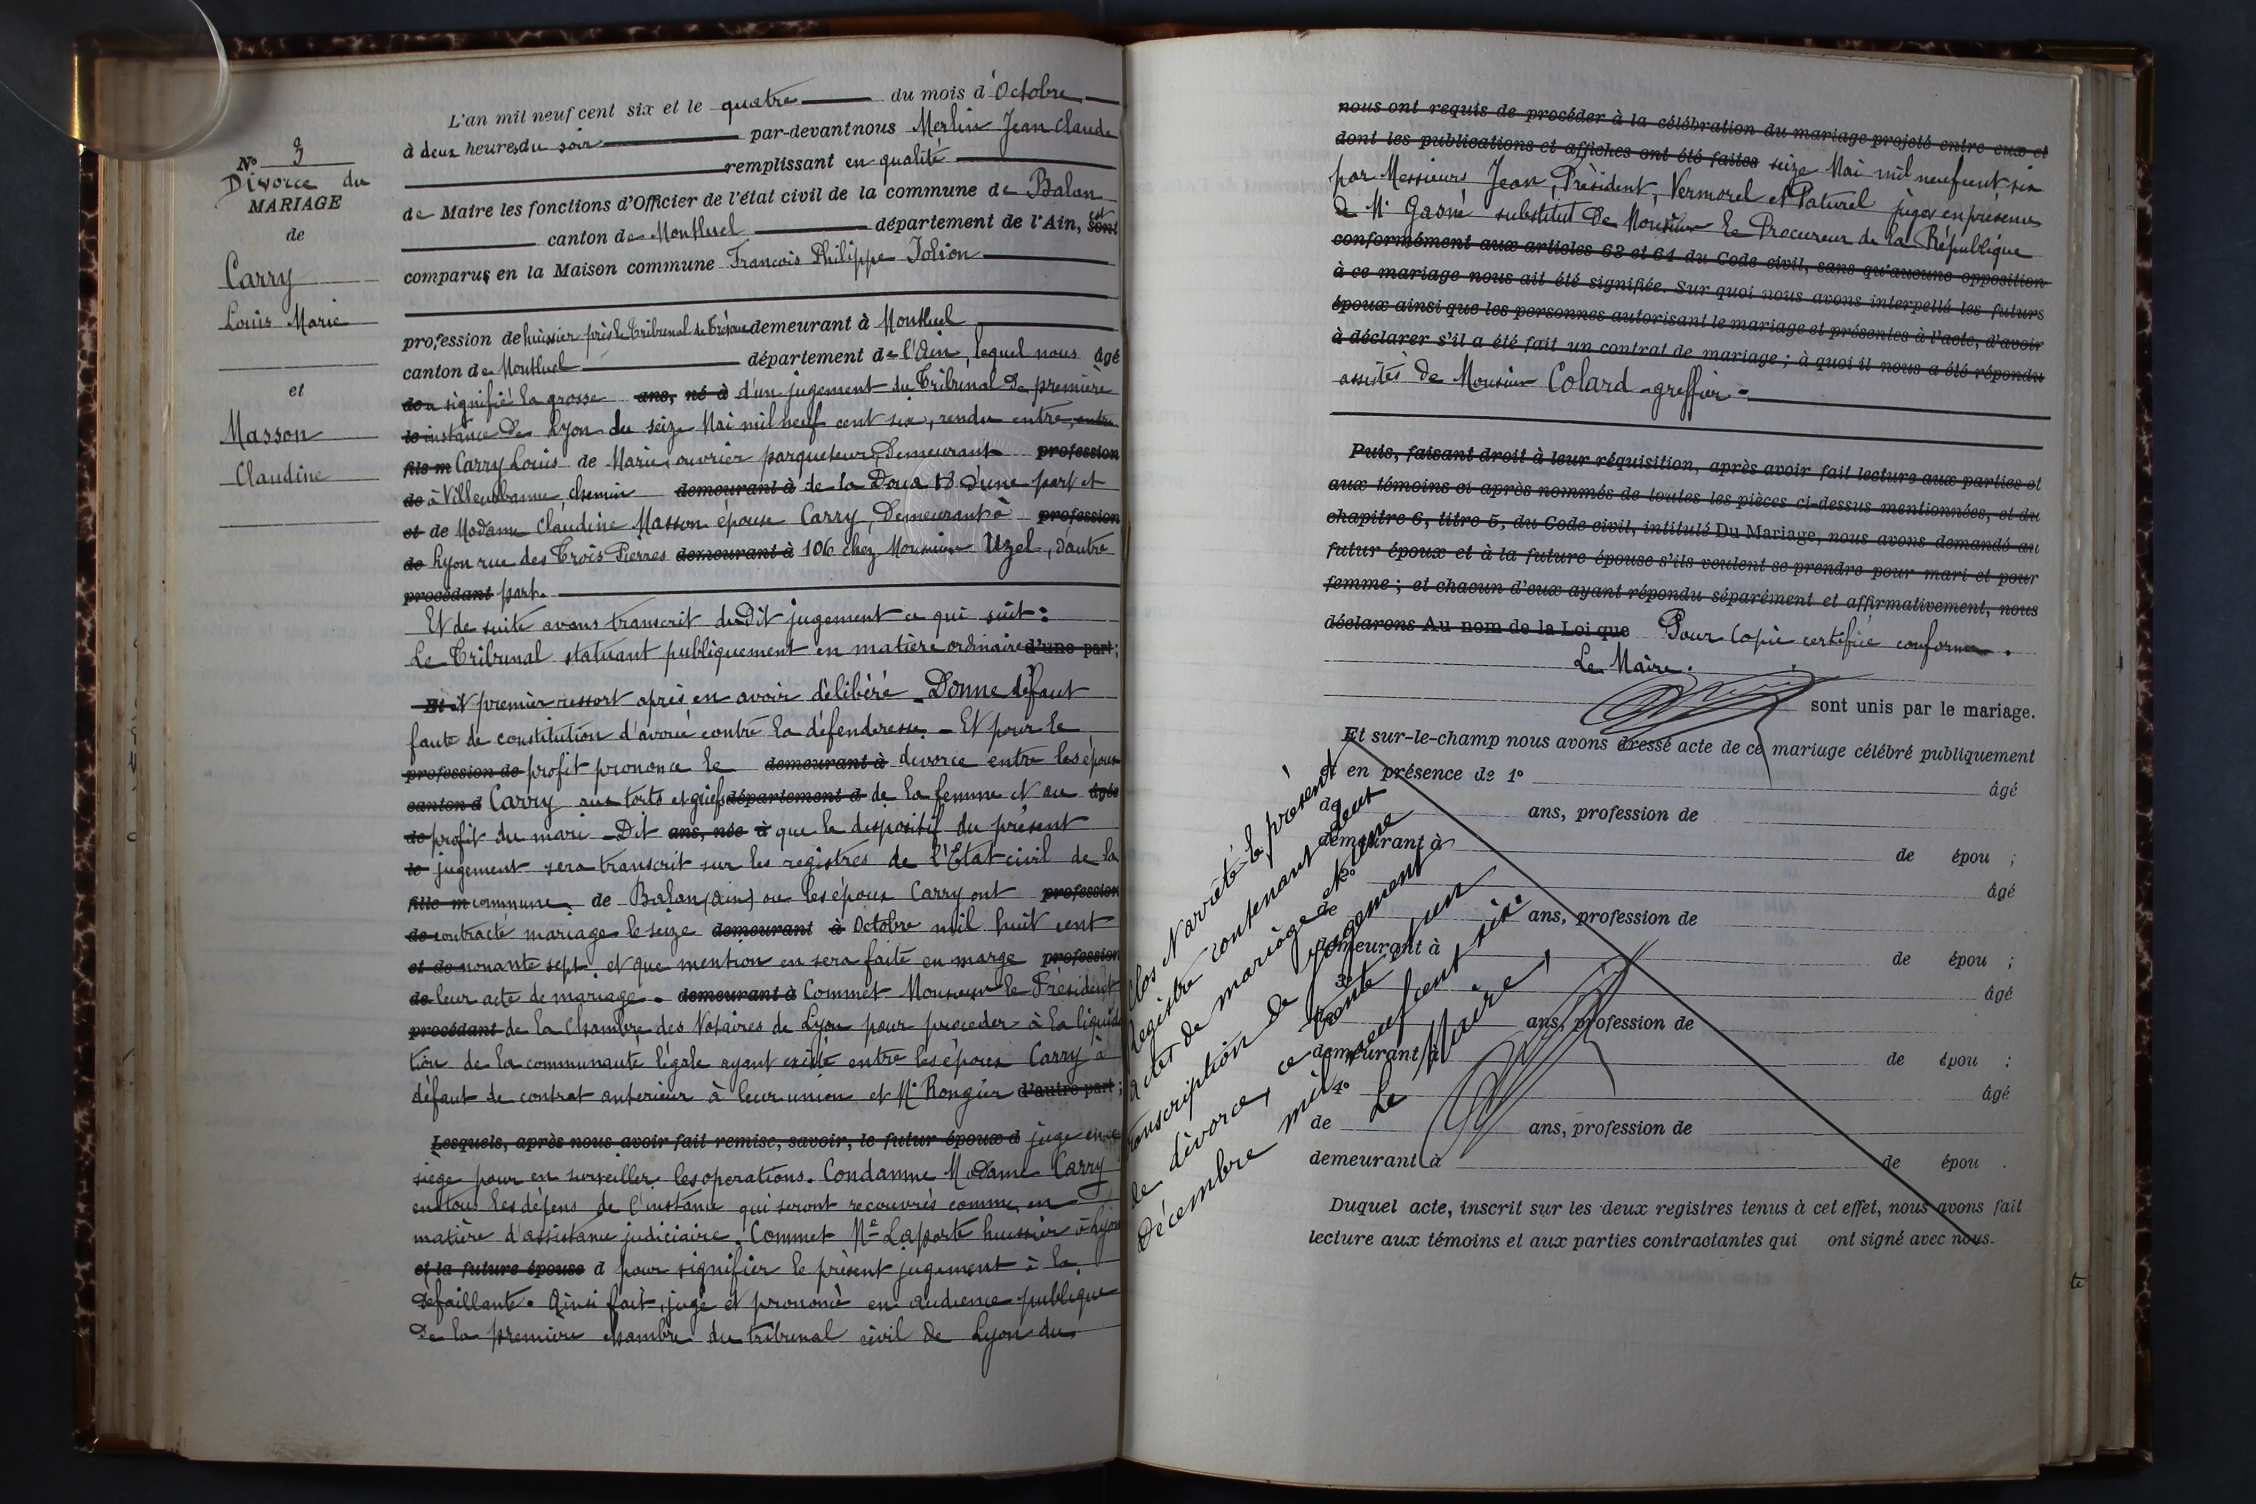 L'an mil neuf cent six et le quatre du mois d'Octobre
à deux heures du soir par-devant nous Merlin Jean Claude
remplissant en qualité
de Maire les fonctions d'Officier de l'état civil de la commune de Balan
canton de Montluel département de l'Ain, est sont
comparus en la Maison commune François Philippe Jolion
profession de huissier près le Tribunal de Trévoux demeurant à Montluel
canton de Montluel département de l'Ain, lequel nous âgé
de a signifié la grosse ans, né à d'un jugement du Tribunal de première
le instance de Lyon du seize Mai mil neuf cent six, rendu entre, entre
fils m Carry Louis de Marie, ouvrier parqueteur, demeurant profession
de à Villeurbanne, chemin demeurant à de la Doua 18 d'une part et
et de Madame Claudine Masson épouse Carry, Demeurant à profession
de Lyon rue des Trois Pierres demeurant à 106 chez Monsieur Uzel, d'autre
procédant part.
Et de suite avons transcrit dudit jugement ce qui suit :
Le Tribunal statuant publiquement en matière ordinaire d'une part ;
Et et premier ressort après en avoir délibéré - Donne défaut
faute de constitution d'avoué contre la défenderesse. - Et pour le
profession de profit prononce le demeurant à divorce entre les époux
canton d Carry aux torts et griefs département d de la femme et au âgée
de profit du mari - Dit ans, née à que le dispositif du présent
le jugement sera transcrit sur les registres de l'Etat civil de la
fille m commune de Balan (Ain) ou les époux Carry ont profession
de contracté mariage le seize demeurant à Octobre mil huit cent
et de nonante sept et que mention en sera faite en marge profession
de leur acte de mariage. demeurant à Commet Monsieur le Président
procédant de la Chambre des Notaires de Lyon pour proceder à la liquida
tion de la communauté légale ayant existé entre les époux Carry à
défaut de contrat anterieur à leur union et Mr Rongier d'autre part ;
Lesquels, après nous avoir fait remise, savoir, le futur époux d juge en ce
siège pour en surveiller les operations. Condamne Madame Carry
en tous les dépens de l'instance qui seront recouvrés comme en
matière d'assistance judiciaire. Commet Me Laporte huissier à Lyon
et la future épouse d pour signifier le présent jugement à la
defaillante. Ainsi fait, jugé et prononcé en audience publique
de la première chambre du tribunal civil de Lyon du
No 3
Divorce du
MARIAGE
de
Carry
Louis Marie
et
Masson
Claudine
nous ont requis de procéder à la célébration du mariage projeté entre eux et
dont les publications et affiches ont été faites seize Mai mil neuf cent six
par Messieurs Jean, Président, Vermorel et Paturel juges en présence
de Mr Gasné substitut de Monsieur le Procureur de la République
conformément aux articles 63 et 64 du Code civil, sans qu'aucune opposition
à ce mariage nous ait été signifiée. Sur quoi nous avons interpellé les futurs
époux ainsi que les personnes autorisant le mariage et présentes à l'acte, d'avoir
à déclarer s'il a été fait un contrat de mariage ; à quoi il nous a été répondu
assistés de Monsieur Colard greffier -
Puis, faisant droit à leur réquisition, après avoir fait lecture aux parties et
aux témoins ci-après nommés de toutes les pièces ci-dessus mentionnées, et du
chapitre 6, titre 5, du Code civil, intitulé Du Mariage, nous avons demandé au
futur époux et à la future épouse s'ils veulent se prendre pour mari et pour
femme ; et chacun d'eux ayant répondu séparément et affirmativement, nous
déclarons Au nom de la Loi que Pour Copie certifiée conforme.
Le Maire.
sont unis par le mariage.
Et sur-le-champ nous avons dressé acte de ce mariage célébré publiquement
et en présence de 1º âgé
de ans, profession de
demeurant à de épou ;
2º âgé
de ans, profession de
demeurant à de épou ;
3º âgé
de ans, profession de
demeurant à de épou ;
4º âgé
de ans, profession de
demeurant à de épou .
Duquel acte, inscrit sur les deux registres tenus à cet effet, nous avons fait
lecture aux témoins et aux parties contractantes qui ont signé avec nous.
Clos et arrêté le présent
Registre contenant deux
actes de mariage et une
transcription de Jugement
de divorce, ce trente et un
Décembre mil neuf cent six.
Le Maire,